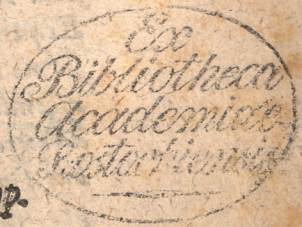 Ex
Bibliotheca
Academiae
Rostochiensis
p.